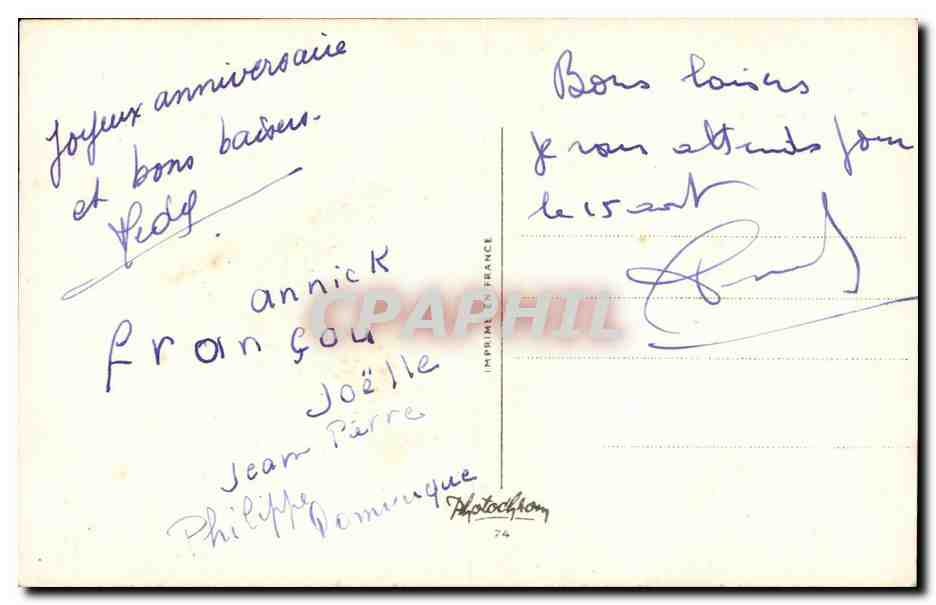 Joyeux anniversaire
et bons baisers.
annick
françou
Joëlle
Jean Pierre
Philippe
Dominique
Bons baisers
je vous attends pour
le 15 aout
IMPRIMÉ EN FRANCE
CPAPHIL
Photochrom
74